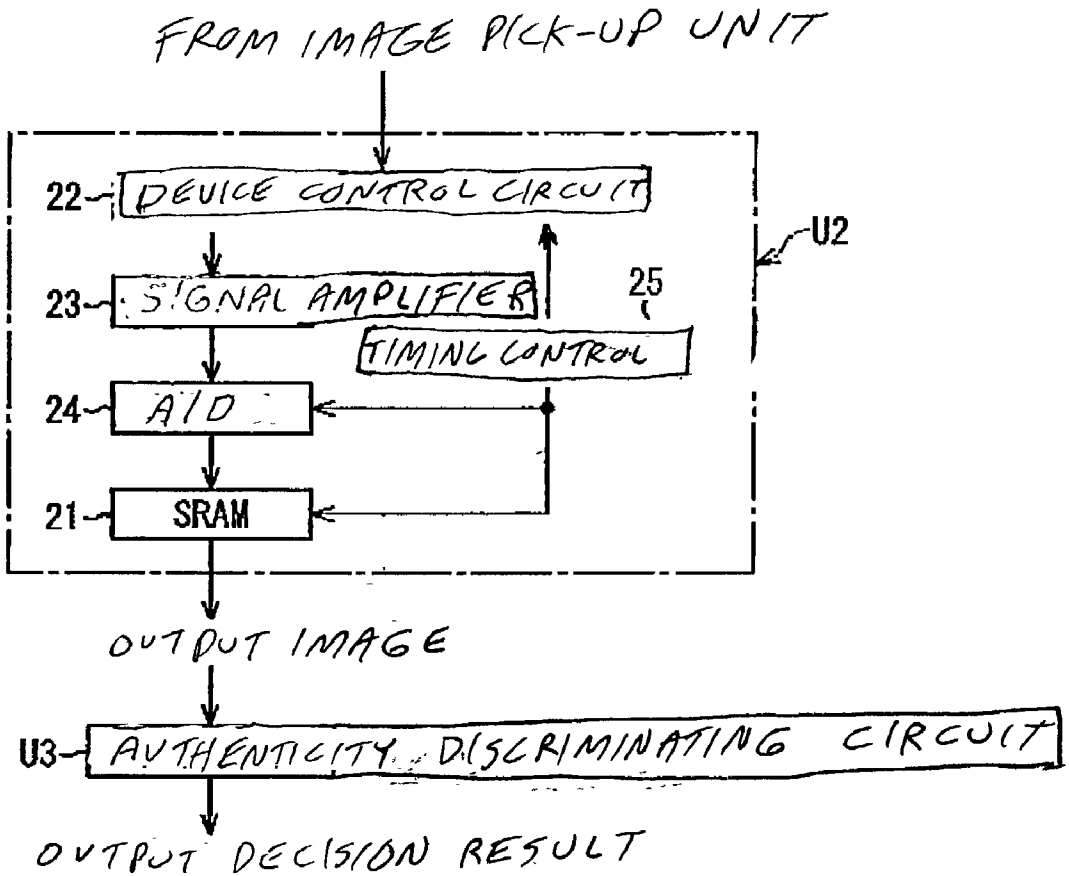 FROM IMAGE PICK-UP UNIT
22 DEVICE CONTROL CIRCUIT
U2
23 SIGNAL AMPLIFIER
25
TIMING CONTROL
24 A/D
21 SRAM
OUTPUT IMAGE
U3 AUTHENTICITY DISCRIMINATING CIRCUIT
OUTPUT DECISION RESULT